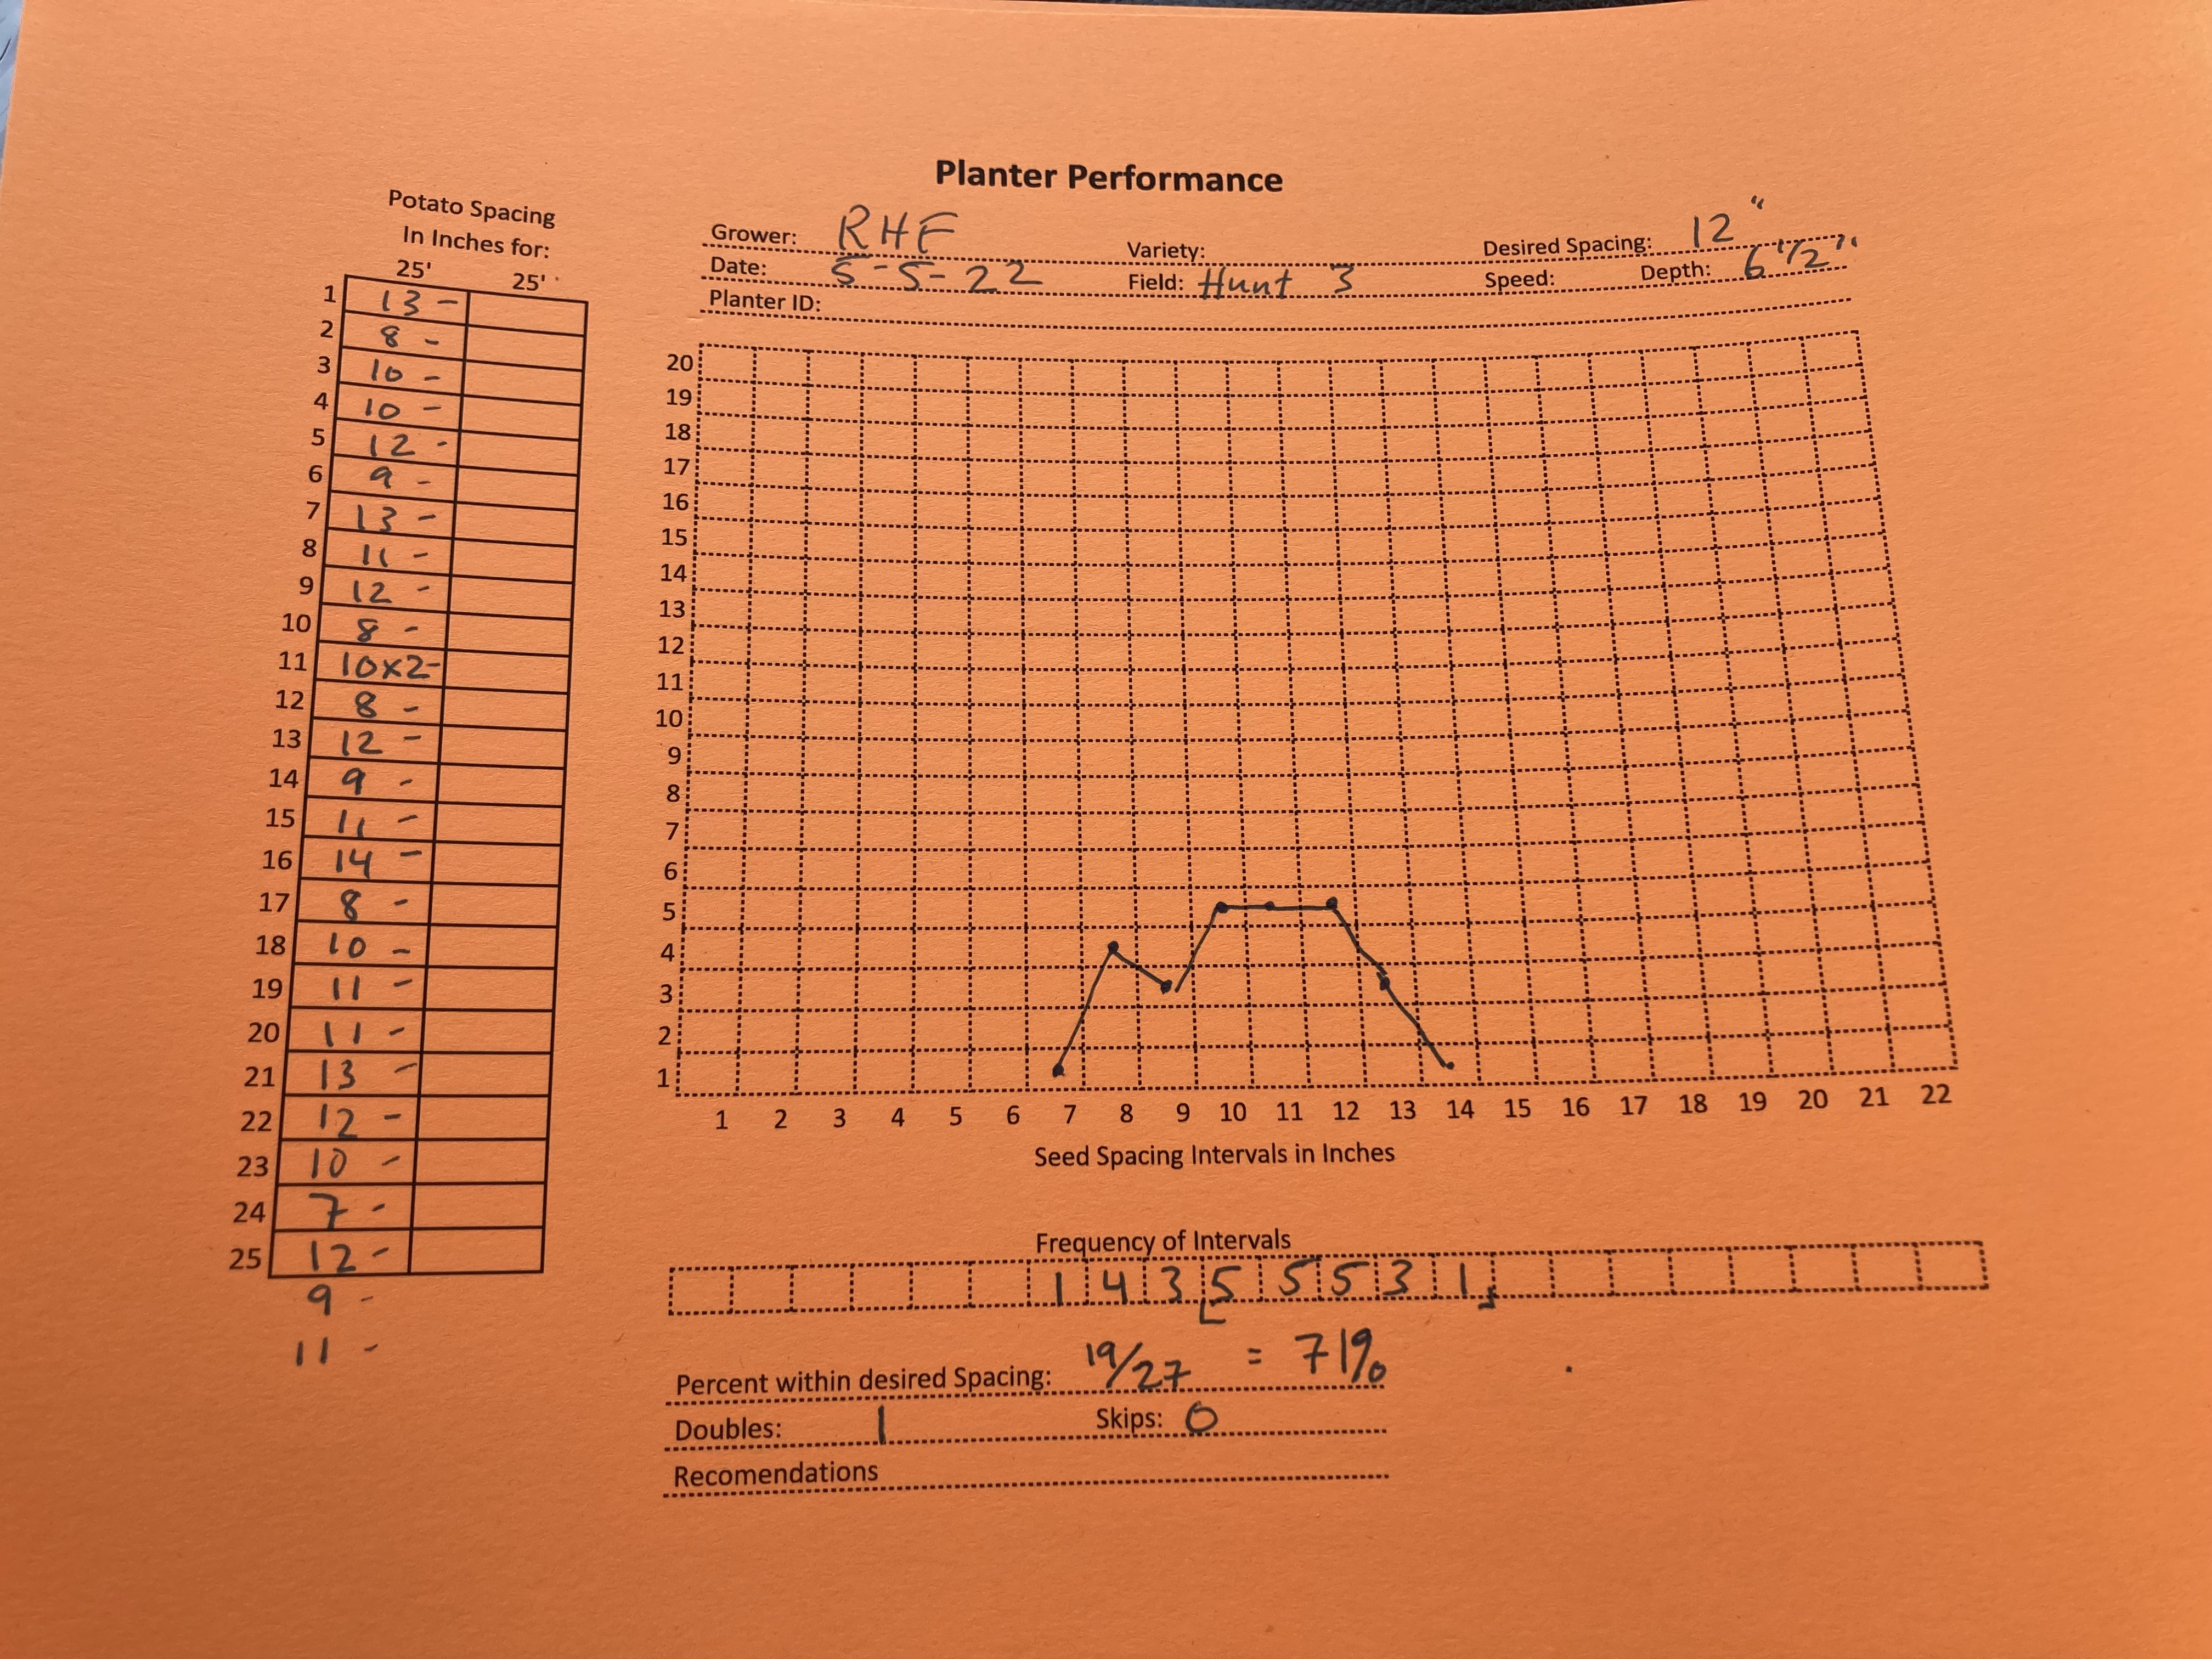 Planter Performance
Potato Spacing
In Inches for:
25' 25'
Grower: RHF Variety: Desired Spacing: 12"
Date: 5-5-22 Field: Hunt 3 Speed: Depth: 6 1/2"
Planter ID:
1 13 -
2 8 -
3 10 -
4 10 -
5 12 -
6 9 -
7 13 -
8 11 -
9 12 -
10 8 -
11 10x2-
12 8 -
13 12 -
14 9 -
15 11 -
16 14 -
17 8 -
18 10 -
19 11 -
20 11 -
21 13 -
22 12 -
23 10 -
24 7 -
25 12 -
9 -
11 -
20
19
18
17
16
15
14
13
12
11
10
9
8
7
6
5
4
3
2
1
1 2 3 4 5 6 7 8 9 10 11 12 13 14 15 16 17 18 19 20 21 22
Seed Spacing Intervals in Inches
Frequency of Intervals
1 4 3 5 5 5 3 1
Percent within desired Spacing: 19/27 = 71%
Doubles: 1 Skips: 0
Recomendations